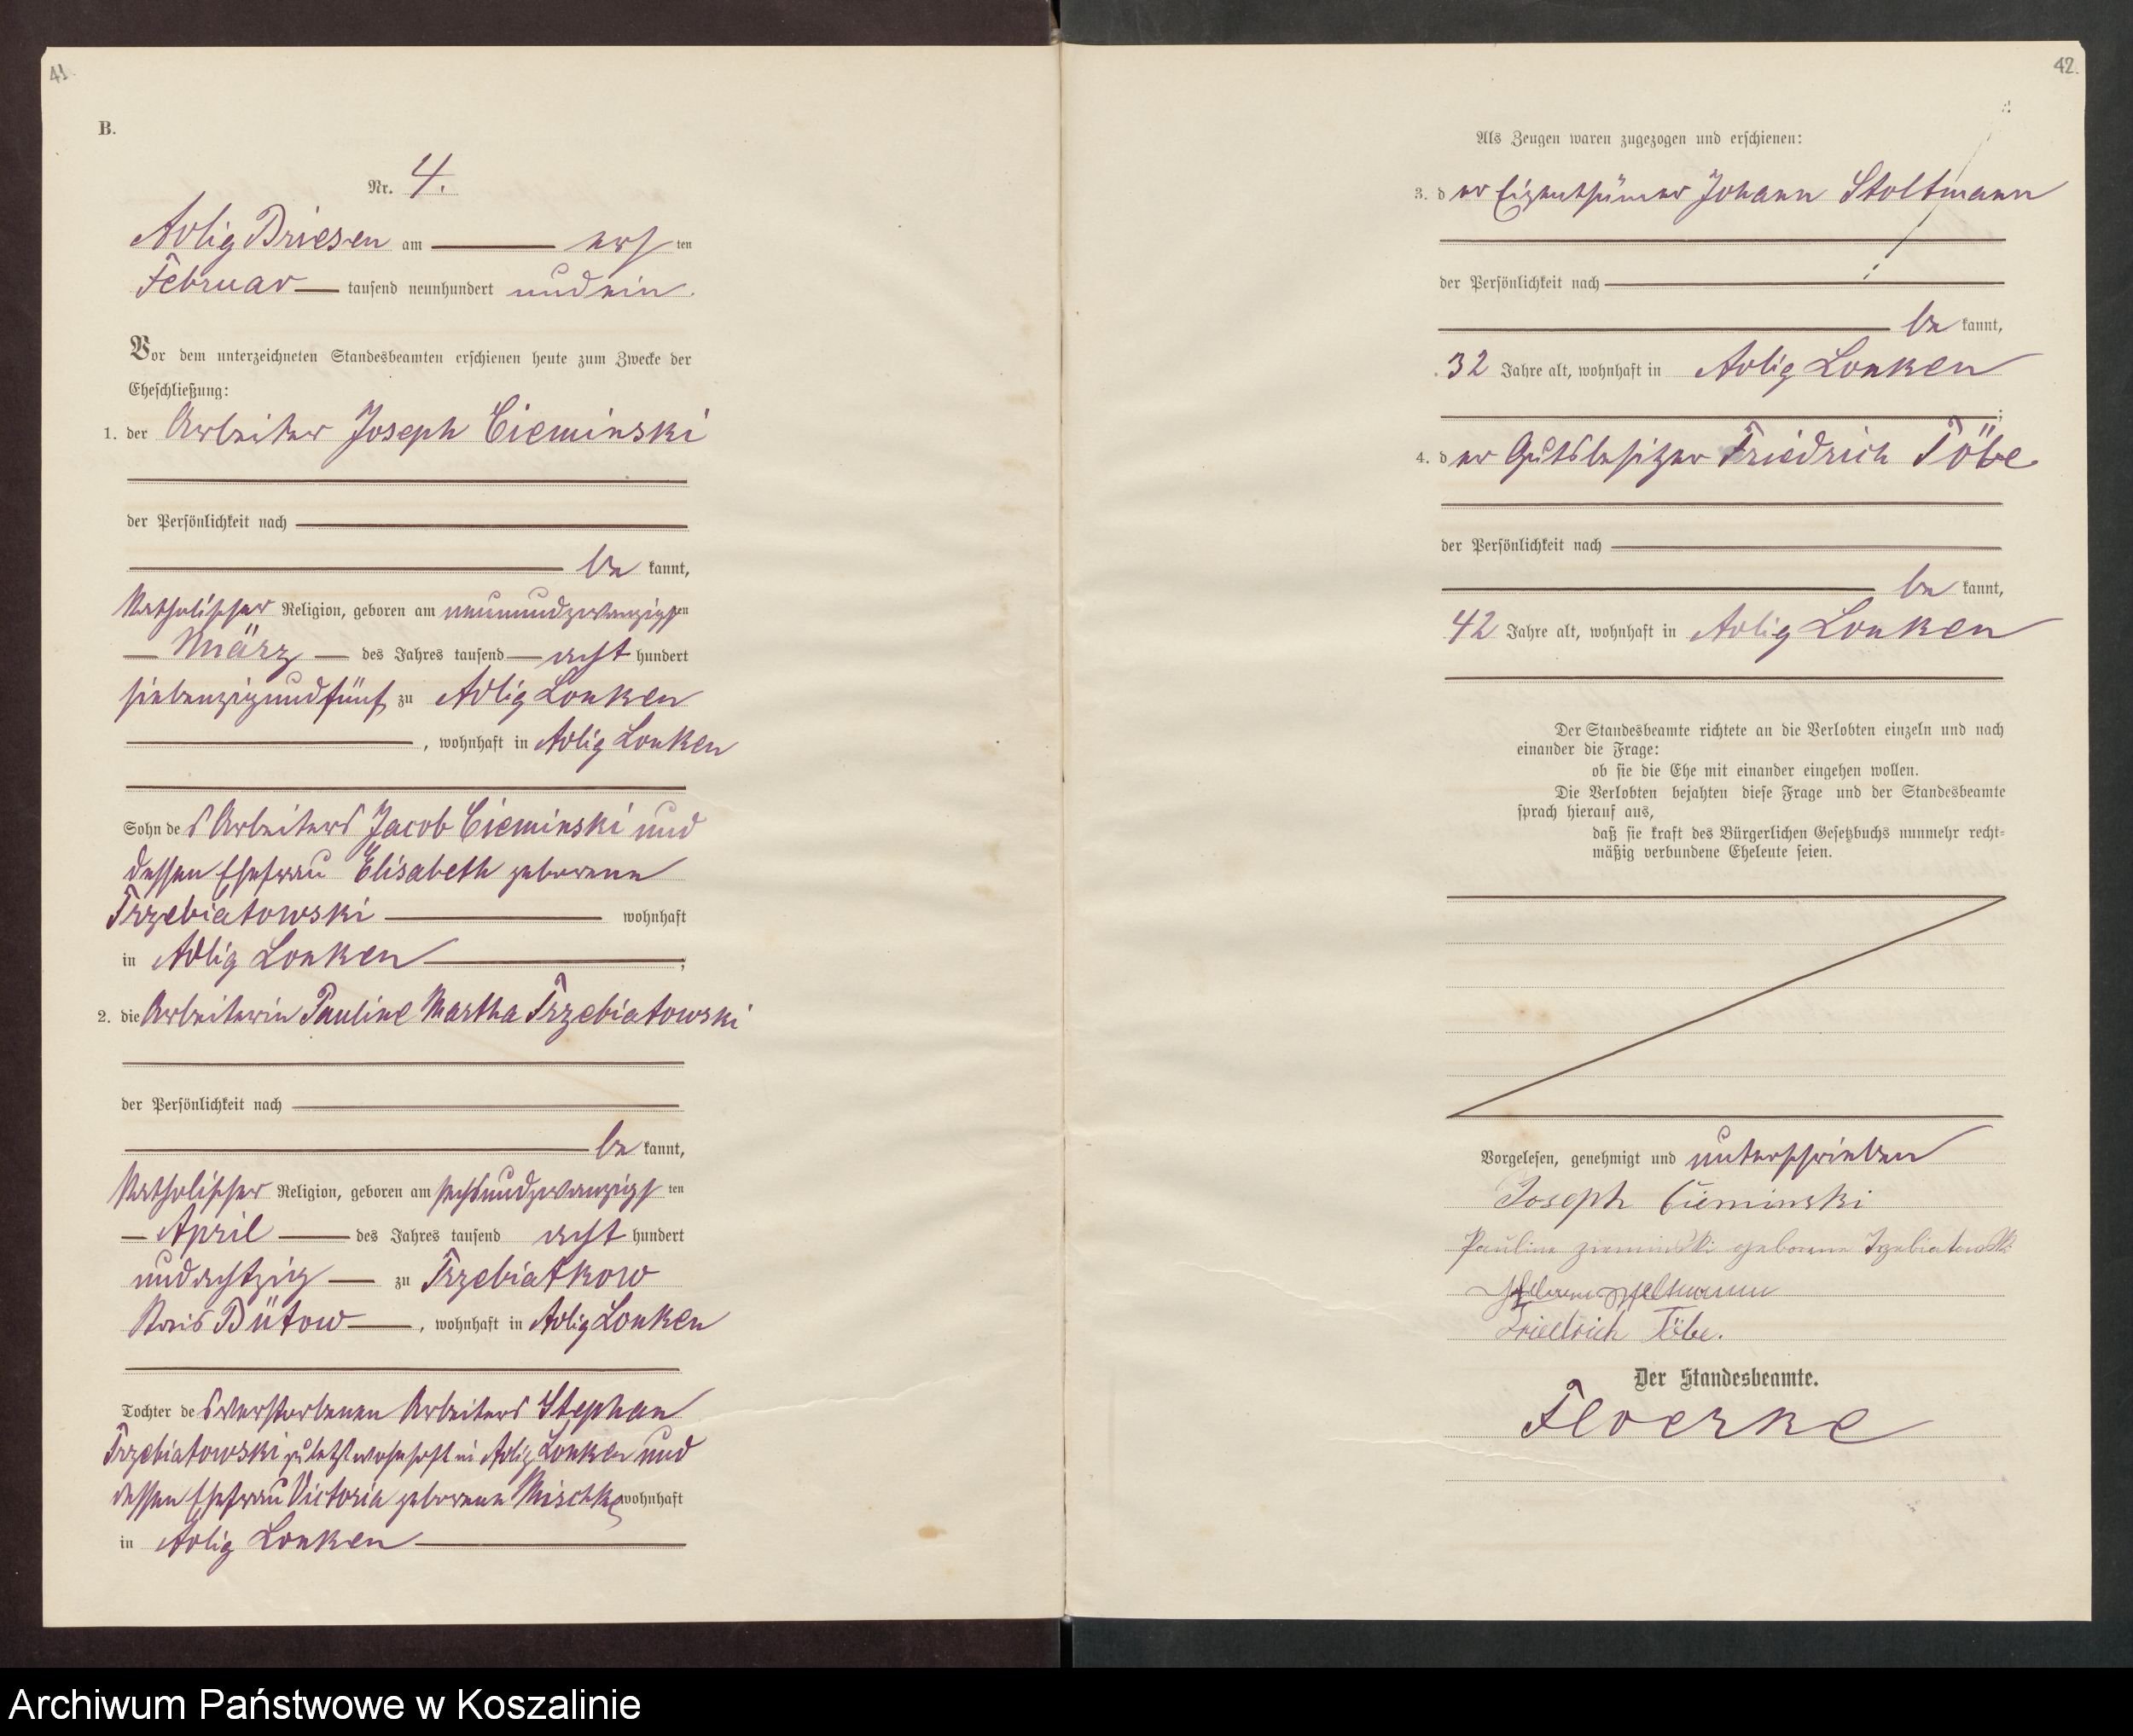 41.
B.
Nr. 4.
Adlig Briesen am ersten
Februar tausend neunhundert und ein.
Vor dem unterzeichneten Standesbeamten erschienen heute zum Zwecke der
Eheschließung:
1. der Arbeiter Joseph Cieminski
der Persönlichkeit nach
be kannt,
katholischer Religion, geboren am neunundzwanzigsten
März des Jahres tausend acht hundert
siebenzig und fünf zu Adlig Lonken
, wohnhaft in Adlig Lonken
Sohn des Arbeiters Jacob Cieminski und
dessen Ehefrau Elisabeth geborene
Trzebiatowski wohnhaft
in Adlig Lonken ;
2. die Arbeiterin Pauline Martha Trzebiatowski
der Persönlichkeit nach
be kannt,
katholischer Religion, geboren am sechsundzwanzigsten
April des Jahres tausend acht hundert
und achtzig zu Trzebiatkow
Kreis Bütow , wohnhaft in Adlig Lonken
Tochter des verstorbenen Arbeiters Stephan
Trzebiatowski zuletzt wohnhaft in Adlig Lonken und
dessen Ehefrau Victoria geborene Mischke wohnhaft
in Adlig Lonken
42.
Als Zeugen waren zugezogen und erschienen:
3. der Eigenthümer Johann Stoltmann
der Persönlichkeit nach
be kannt,
32 Jahre alt, wohnhaft in Adlig Lonken
;
4. der Gutsbesitzer Friedrich Töbe
der Persönlichkeit nach
be kannt,
42 Jahre alt, wohnhaft in Adlig Lonken
Der Standesbeamte richtete an die Verlobten einzeln und nach
einander die Frage:
ob sie die Ehe mit einander eingehen wollen.
Die Verlobten bejahten diese Frage und der Standesbeamte
sprach hierauf aus,
daß sie kraft des Bürgerlichen Gesetzbuchs nunmehr recht-
mäßig verbundene Eheleute seien.
Vorgelesen, genehmigt und unterschrieben
Joseph Cieminski
Pauline Zieminski geborene Tzebiatowski
Friedrich Töbe.
Der Standesbeamte.
Floerke
Archiwum Państwowe w Koszalinie